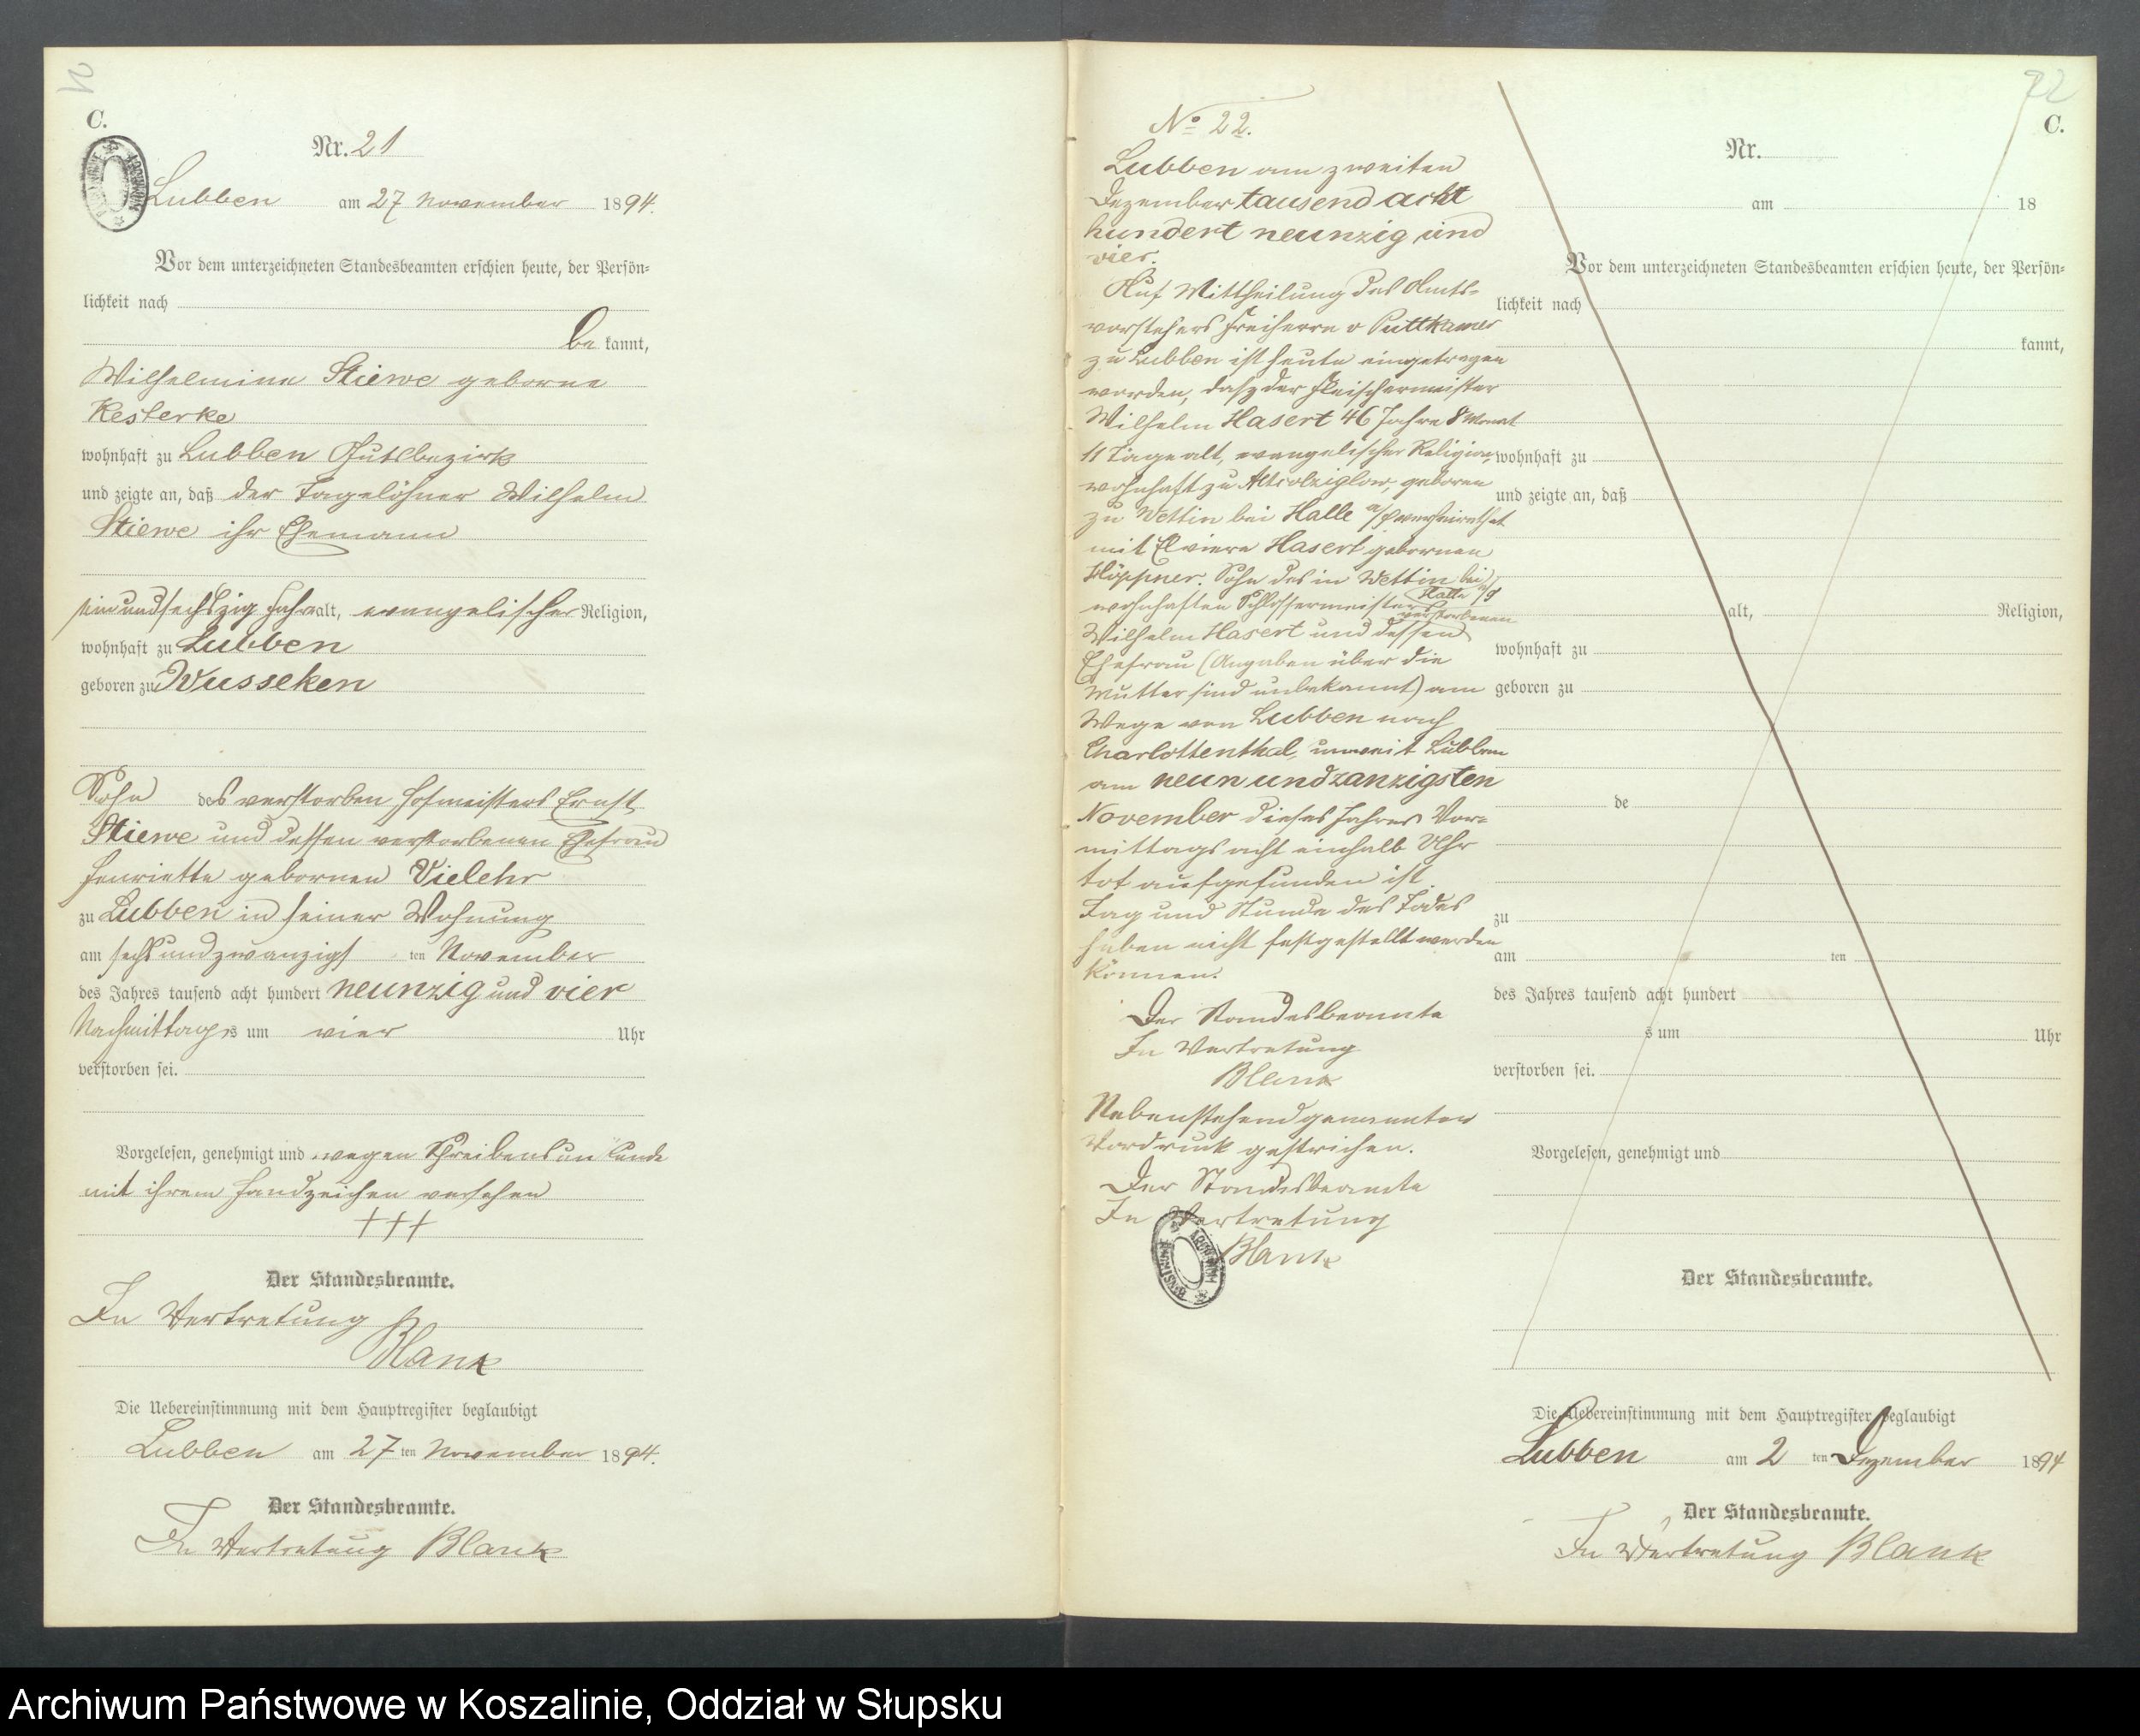 C.
Nr. 21
Lubben am 27 November 1894.
Vor dem unterzeichneten Standesbeamten erschien heute, der Persön-
lichkeit nach
be kannt,
Wilhelmine Stiewe geborne
Kesterke
wohnhaft zu Lubben Gutsbezirk
und zeigte an, daß der Tagelöhner Wilhelm
Stiewe ihr Ehemann
einundsechszig Jahre alt, evangelischer Religion,
wohnhaft zu Lubben
geboren zu Wusseken
Sohn des verstorben Hofmeisters Ernst
Stiewe und dessen verstorbenen Ehefrau
Henriette gebornen Vielehr
zu Lubben in seiner Wohnung
am sechsundzwanzigsten November
des Jahres tausend acht hundert neunzig und vier
Nachmittags um vier Uhr
verstorben sei.
Vorgelesen, genehmigt und wegen Schreibensunkunde
mit ihrem Handzeichen versehen
+++
Der Standesbeamte.
In Vertretung
Blank
Die Uebereinstimmung mit dem Hauptregister beglaubigt
Lubben am 27 ten November 1894.
Der Standesbeamte.
In Vertretung Blank
72
C.
No 22.
Lubben am zweiten
Dezember tausend acht
hundert neunzig und
vier.
Auf Mittheilung des Amts-
vorstehers Freiherrn v Puttkamer
zu Lubben ist heute eingetragen
worden, daß der Fleischermeister
Wilhelm Hasert 46 Jahre 8 Monat
11 Tage alt, evangelischer Religion,
wohnhaft zu Altcolziglow, geboren
zu Wettin bei Halle a/S verheirathet
mit Elwiere Hasert gebornen
Höppner. Sohn des in Wettin bei
Halle a/S
wohnhaften Schlossermeister
verstorbenen
Wilhelm Hasert und dessen
Ehefrau (Angaben über die
Mutter sind unbekannt) am
Wege von Lubben nach
Charlottenthal, unweit Lubben
am neunundzanzigsten
November dieses Jahres Vor-
mittags acht einhalb Uhr
tot aufgefunden ist.
Tag und Stunde des Todes
haben nicht festgestellt werden
können.
Der Standesbeamte
In Vertretung
Blank
Nebenstehend genannter
Vordruck gestrichen.
Der Standesbeamte
In Vertretung
Blank
Nr.
am 18
Vor dem unterzeichneten Standesbeamten erschien heute, der Persön-
lichkeit nach
kannt,
wohnhaft zu
und zeigte an, daß
alt, Religion,
wohnhaft zu
geboren zu
de
zu
am ten
des Jahres tausend acht hundert
s um Uhr
verstorben sei.
Vorgelesen, genehmigt und
Der Standesbeamte.
Die Uebereinstimmung mit dem Hauptregister beglaubigt
Lubben am 2 ten Dezember 1894
Der Standesbeamte.
In Vertretung Blank
Archiwum Państwowe w Koszalinie, Oddział w Słupsku